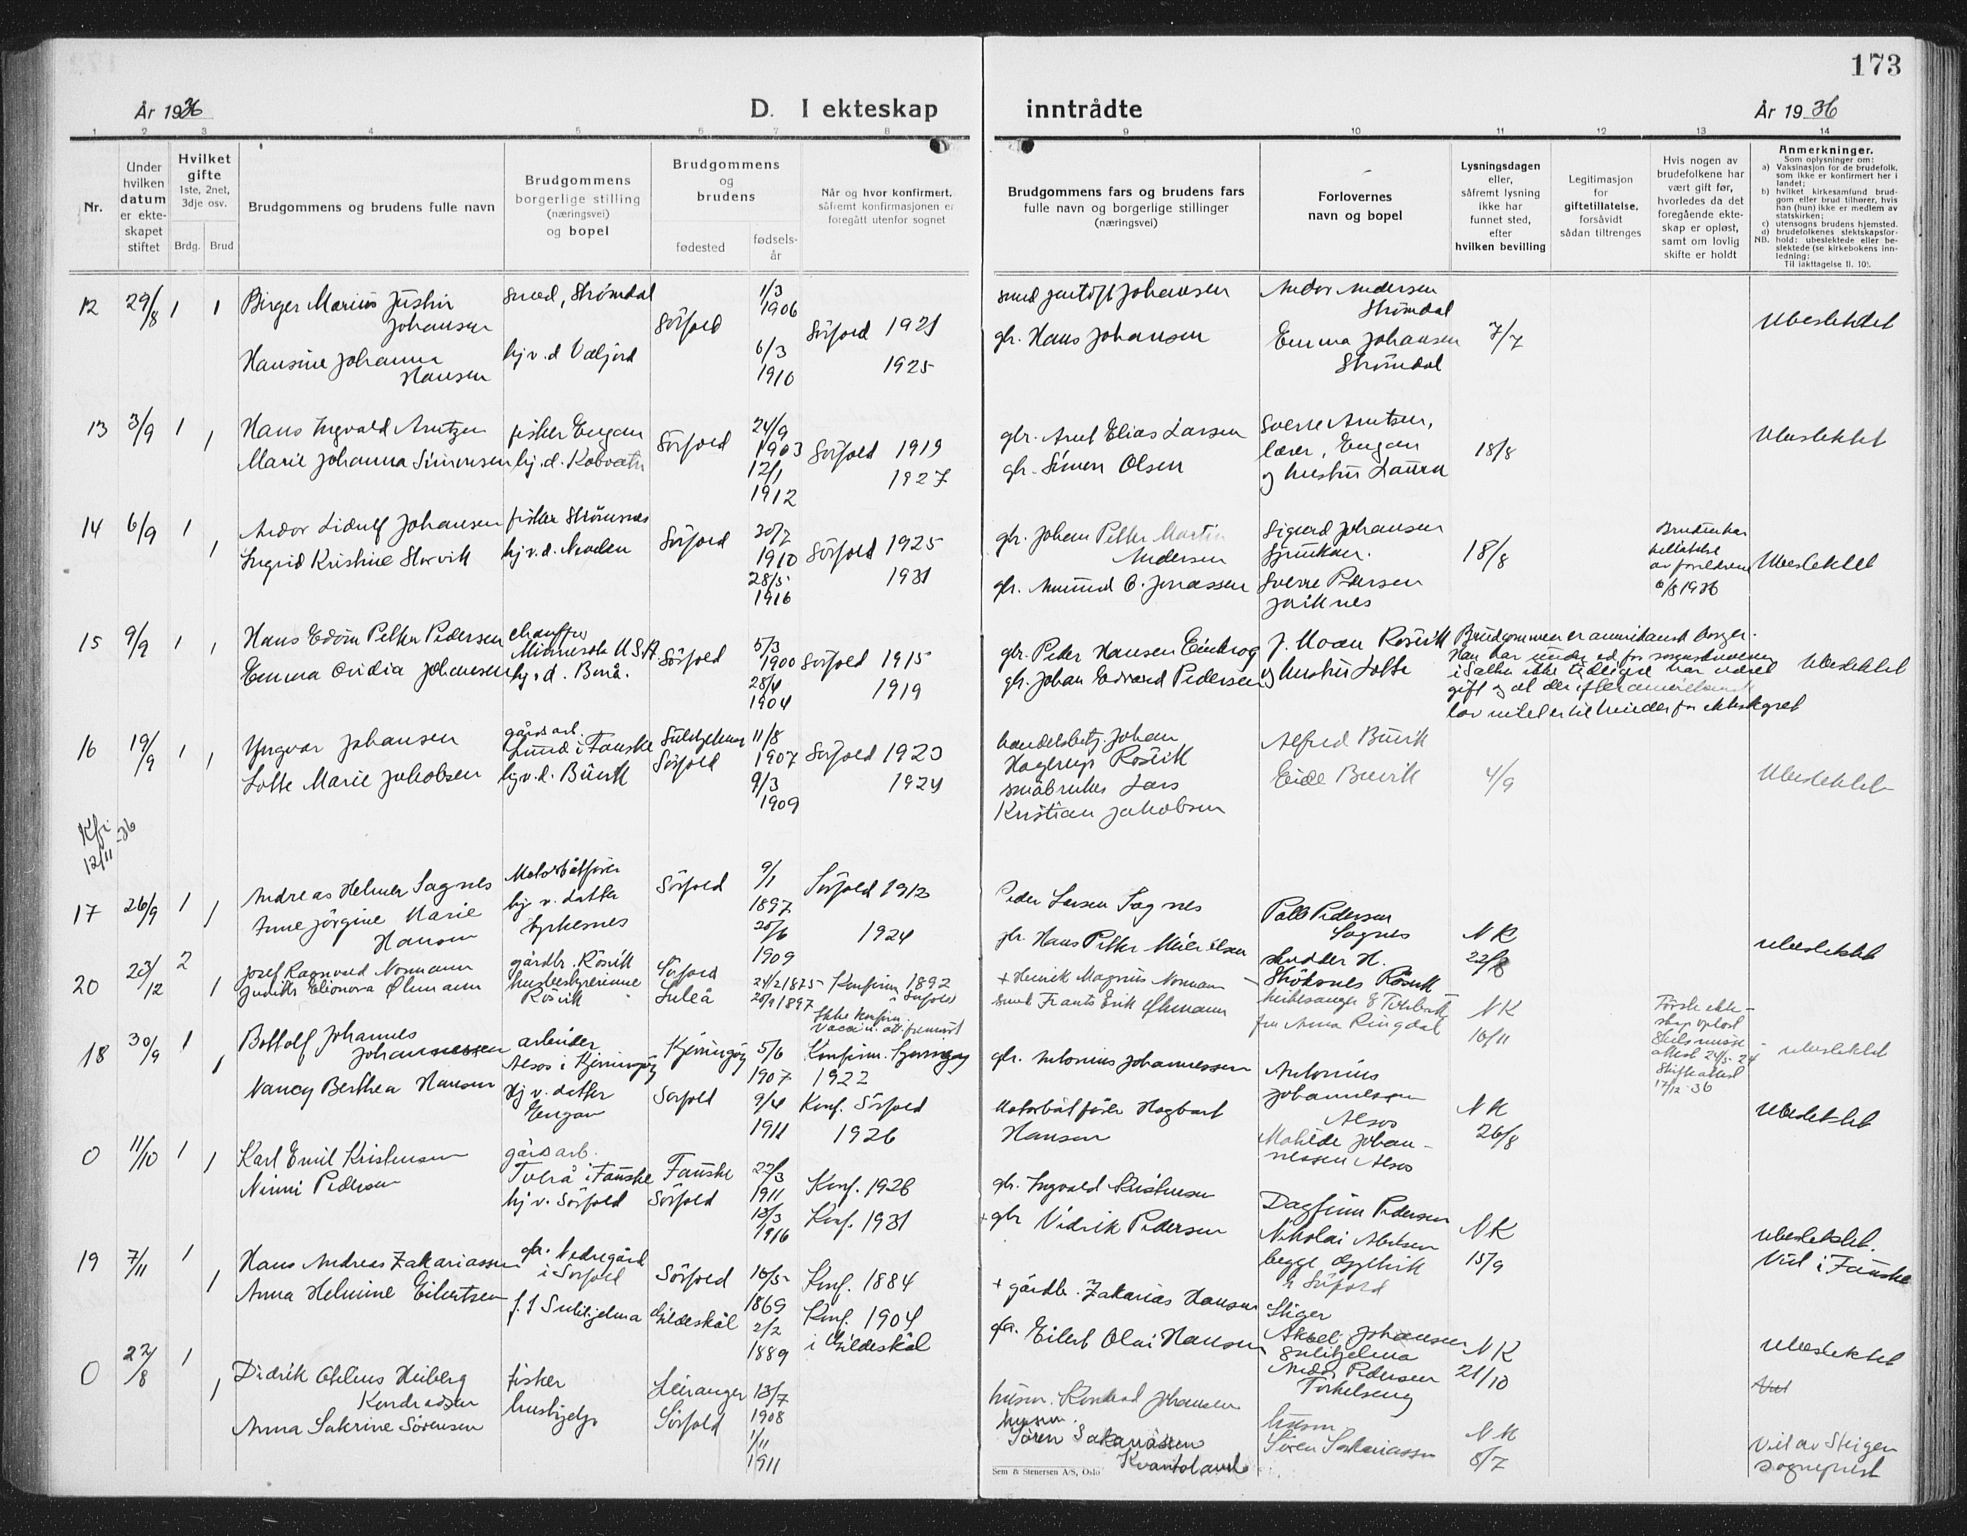 173
År 1936
D. I ekteskap inntrådte
År 1936
1 2 3 4 5 6 7 8 9 10 11 12 13 14
Nr.
Under hvilken datum er ekteskapet stiftet
Hvilket gifte
1ste, 2net, 3dje osv.
Brdg. Brud
Brudgommens og brudens fulle navn
Brudgommens borgerlige stilling (næringsvei) og bopel
Brudgommens og brudens
fødested
fødsels-år
Når og hvor konfirmert, såfremt konfirmasjonen er foregått utenfor sognet
Brudgommens fars og brudens fars fulle navn og borgerlige stillinger (næringsvei)
Forlovernes navn og bopel
Lysningsdagen eller, såfremt lysning ikke har funnet sted, efter hvilken bevilling
Legitimasjon for giftetillatelse, forsåvidt sådan tiltrenges
Hvis nogen av brudefolkene har vært gift før, hvorledes da det foregående ekteskap er opløst, samt om lovlig skifte er holdt
Anmerkninger.
Som oplysninger om:
a) Vaksinasjon for de brudefolk, som ikke er konfirmert her i landet;
b) hvilket kirkesamfund brudgom eller brud tilhører, hvis han (hun) ikke er medlem av statskirken;
c) utensogns brudens hjemsted.
d) brudefolkenes slektskapsforhold: ubeslektede eller beslektede (se kirkebokens innledning:
NB.
Til iakttagelse II. 10).
12 29/8 1 1 Birger Marius Justin Johansen
smed, Strømdal
Sørfold
1/3 1906
Sørfold 1921
smed Johansen
Andor Andersen Strømdal
7/7
Ubeslektet
Hansine Johanna Hansen
hj.v.d Valjord
6/3 1910
1925
gbr. Hans Johansen
Emma Johansen Strømdal
13 3/9 1 1 Hans Ingvald Arntzen
fisker Engan
Sørfold
24/9 1903
Sørfold 1919
gbr. Arnt Elias Larsen
Sverre Arntsen, lærer, Engan og hustru Laura
18/8
Ubeslektet
Marie Johanna Simonsen
hj.d. Kobvatn
12/1 1912
1927
gbr. Simon Olsen
14 6/9 1 1 Andor Lidulf Johansen
fisker Strømsnes
Sørfold
30/7 1910
Sørfold 1925
gbr. Johan Petter Martin Andersen
Sigurd Johansen
18/8
Bruden har tillatelse av foreldrene 6/8 1936
Ubeslektet
Ingrid Kristine Storvik
hj.v.d.
28/5 1916
1931
gbr. Amund O. Jonassen
Sverre Pedersen
15 9/9 1 1 Hans Edvin Petter Pedersen
chauffør Minnesota U.S.A
Sørfold
5/3 1900
Sørfold 1915
gbr. Peder Hansen
J. Moan Røsvik og hustru Lotte
Brudgommen er amerikansk borger. Han har under ed for sorenskriveren i Salten ikke tidligere har været gift og at der efter amerikansk lov intet er til hinder for ekteskapet
Ubeslektet
Emma Ovidia Johansen
hj.v.d. Buvå.
28/4 1904
1919
gbr. Johan Edvard Pedersen
16 19/9 1 1 Yngvar Johansen
gårdsarb. Lund i Fauske
Sulitjelma
11/8 1907
Sørfold 1923
handelsbetj. Johan Hagerup Røsvik
Alfred Buvik
4/9
Ubeslektet
Lotte Marie Jakobsen
hj.v.d. Buvik
Sørfold
9/3 1909
1924
småbruker Lars Kristian Jakobsen
Buvik
12/11 -36
17 26/9 1 1 Andreas Helmer Sagnes
Motorbåtfører
Sørfold
9/1 1897
Sørfold 1912
Peder Larsen Sagnes
Pedersen Sagnes
NK 22/8
ubeslektet
Anne Jørgine Marie Hansen
hj.v. datter
1909
1924
gbr. Hans Petter
20 23/12 2 1 Josef Ragnvald Normann
gårdbr. Røsvik
Sørfold
24/2 1875
Konfirm. 1892 i Sørfold
+ Henrik Magnus Normann
Røsvik
NK 16/11
Første ekteskap opløst 24/5-24 Skifteattest 17/12-36
ubeslektet
Judith Elionora Öhmann
husbestyrerinne Røsvik
Luleå
20/9 1897
Ikke konfirm.
smed Frants Erik Öhmann
fru Anna Ringdal
18 30/9 1 1 Bottolf Johannes Johannessen
arbeider Alsos i Kjerringøy
Kjerringøy
5/6 1907
Konfirm. Kjerringøy 1922
gbr. Antonius Johannessen
Antonius Johannessen Alsos
NK 26/8
Ubeslektet
Nancy Berthea Hansen
Hj.v. datter Engan
Sørfold
9/4 1911
Konf. Sørfold 1926
Motorbåtfører Hagbart Hansen
Matilde Johannessen Alsos
0 11/10 1 1 Karl Emil Kristensen
gårdsarb. Tverå i Fauske
Fauske
22/3 1911
Konf. 1926
gbr. Ingvald Kristensen
Dagfinn Pedersen
NK 15/9
ubeslektet. Viet i Fauske
Ninni Pedersen
hj.v. Sørfold
Sørfold
13/3 1916
Konf. 1931
+ gbr Vidrik Pedersen
Nikolai begge i Sørfold
19 7/11 1 1 Hans Andreas Zakariassen
gbr. Nedregård i Sørfold
Sørfold
16/5 1869
Konf. 1884
+ gårdbr. Zakarias Hansen
Stiger Aksel Johansen Sulitjelma
NK 21/10
Ubeslektet
Anna Helmine Eilertsen
Sulitjelma
Gildeskål
2/2 1889
Konf. 1904 i Gildeskål
gbr. Eilert Olai Hansen
Andor Pedersen
0 22/8 1 1 Didrik Heiberg Kondradsen
fisker
Leiranger
13/7 1908
husm. Konrad Johansen
husm. Søren Sakariassen
NK 8/7
Viet av Steigen sogneprest
Anna Sakrine Sørensen
hushjelp
Sørfold
1/11 1911
husm. Søren Sakariassen
Sem & Stenersen A/S, Oslo